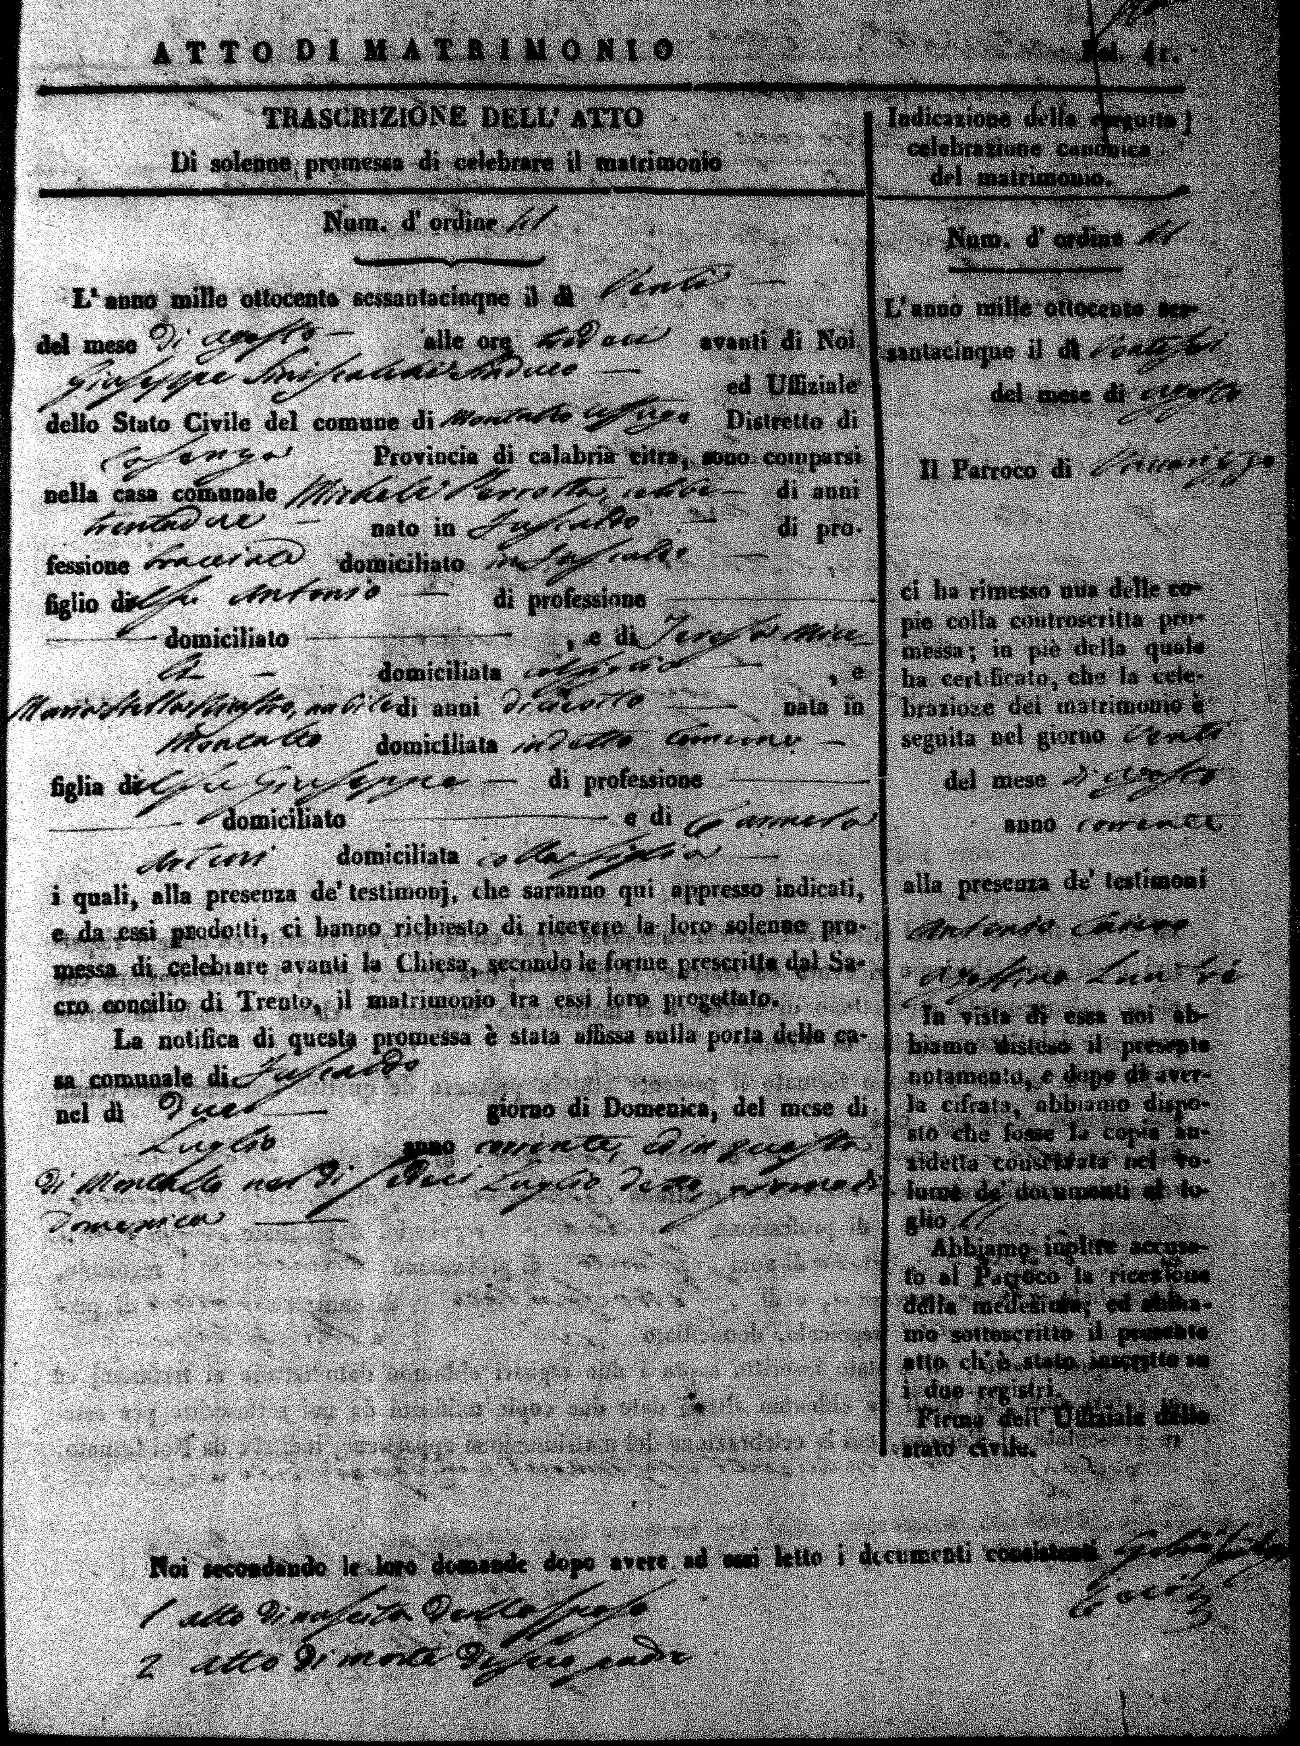 ATTO DI MATRIMONIO
Fol. 41.
TRASCRIZIONE DELL' ATTO
Di solenne promessa di celebrare il matrimonio
Num. d' ordine 41
L' anno mille ottocento sessantacinque il dì Venti
del mese di agosto alle ore avanti di Noi
Giuseppe Sindaco ed Uffiziale
dello Stato Civile del comune di Montalto Uffugo Distretto di
Cosenza Provincia di calabria citra, sono comparsi
nella casa comunale Michele Perrotta, celibe di anni
trentadue nato in Fuscaldo di pro-
fessione bracciale domiciliato in Fuscaldo
figlio di Antonio di professione
domiciliato , e di Teresa
domiciliata , e
Maria Stella nubile di anni diciotto nata in
Montalto domiciliata in detto Comune
figlia di Giuseppe di professione
domiciliato e di Carmela
domiciliata colla figlia
i quali, alla presenza de' testimonj, che saranno qui appresso indicati,
e da essi prodotti, ci hanno richiesto di ricevere la loro solenne pro-
messa di celebrare avanti la Chiesa, secondo le forme prescritte dal Sa-
cro concilio di Trento, il matrimonio tra essi loro progettato.
La notifica di questa promessa è stata affissa sulla porta della ca-
sa comunale di Fuscaldo
nel dì Due giorno di Domenica, del mese di
Luglio anno corrente, ed in questa
di Montalto nel dì sedici Luglio detto, giorno di
Domenica
Indicazione della seguita
celebrazione canonica
del matrimonio.
Num. d' ordine 41
L' anno mille ottocento ses-
santacinque il dì
del mese di agosto
Il Parroco di
ci ha rimesso una delle co-
pie colla controscritta pro-
messa; in piè della quale
ha certificato, che la cele-
brazione del matrimonio è
seguita nel giorno venti
del mese di agosto
anno corrente
alla presenza de' testimoni
Antonio
Agostino
In vista di essa noi ab-
biamo disteso il presente
notamento, e dopo di aver-
la cifrata, abbiamo dispo-
sto che fosse la copia an-
zidetta conservata nel vo-
lume de' documenti al fo-
glio
Abbiamo inoltre accusa-
to al Parroco la ricezione
della medesima; ed abbia-
mo sottoscritto il presente
atto ch' è stato inscritto su
i due registri.
Firma dell' Uffiziale dello
stato civile.
Noi secondando le loro domande dopo avere ad essi letto i documenti consistenti
1 atto di nascita dello sposo
2 atto di morte di suo padre